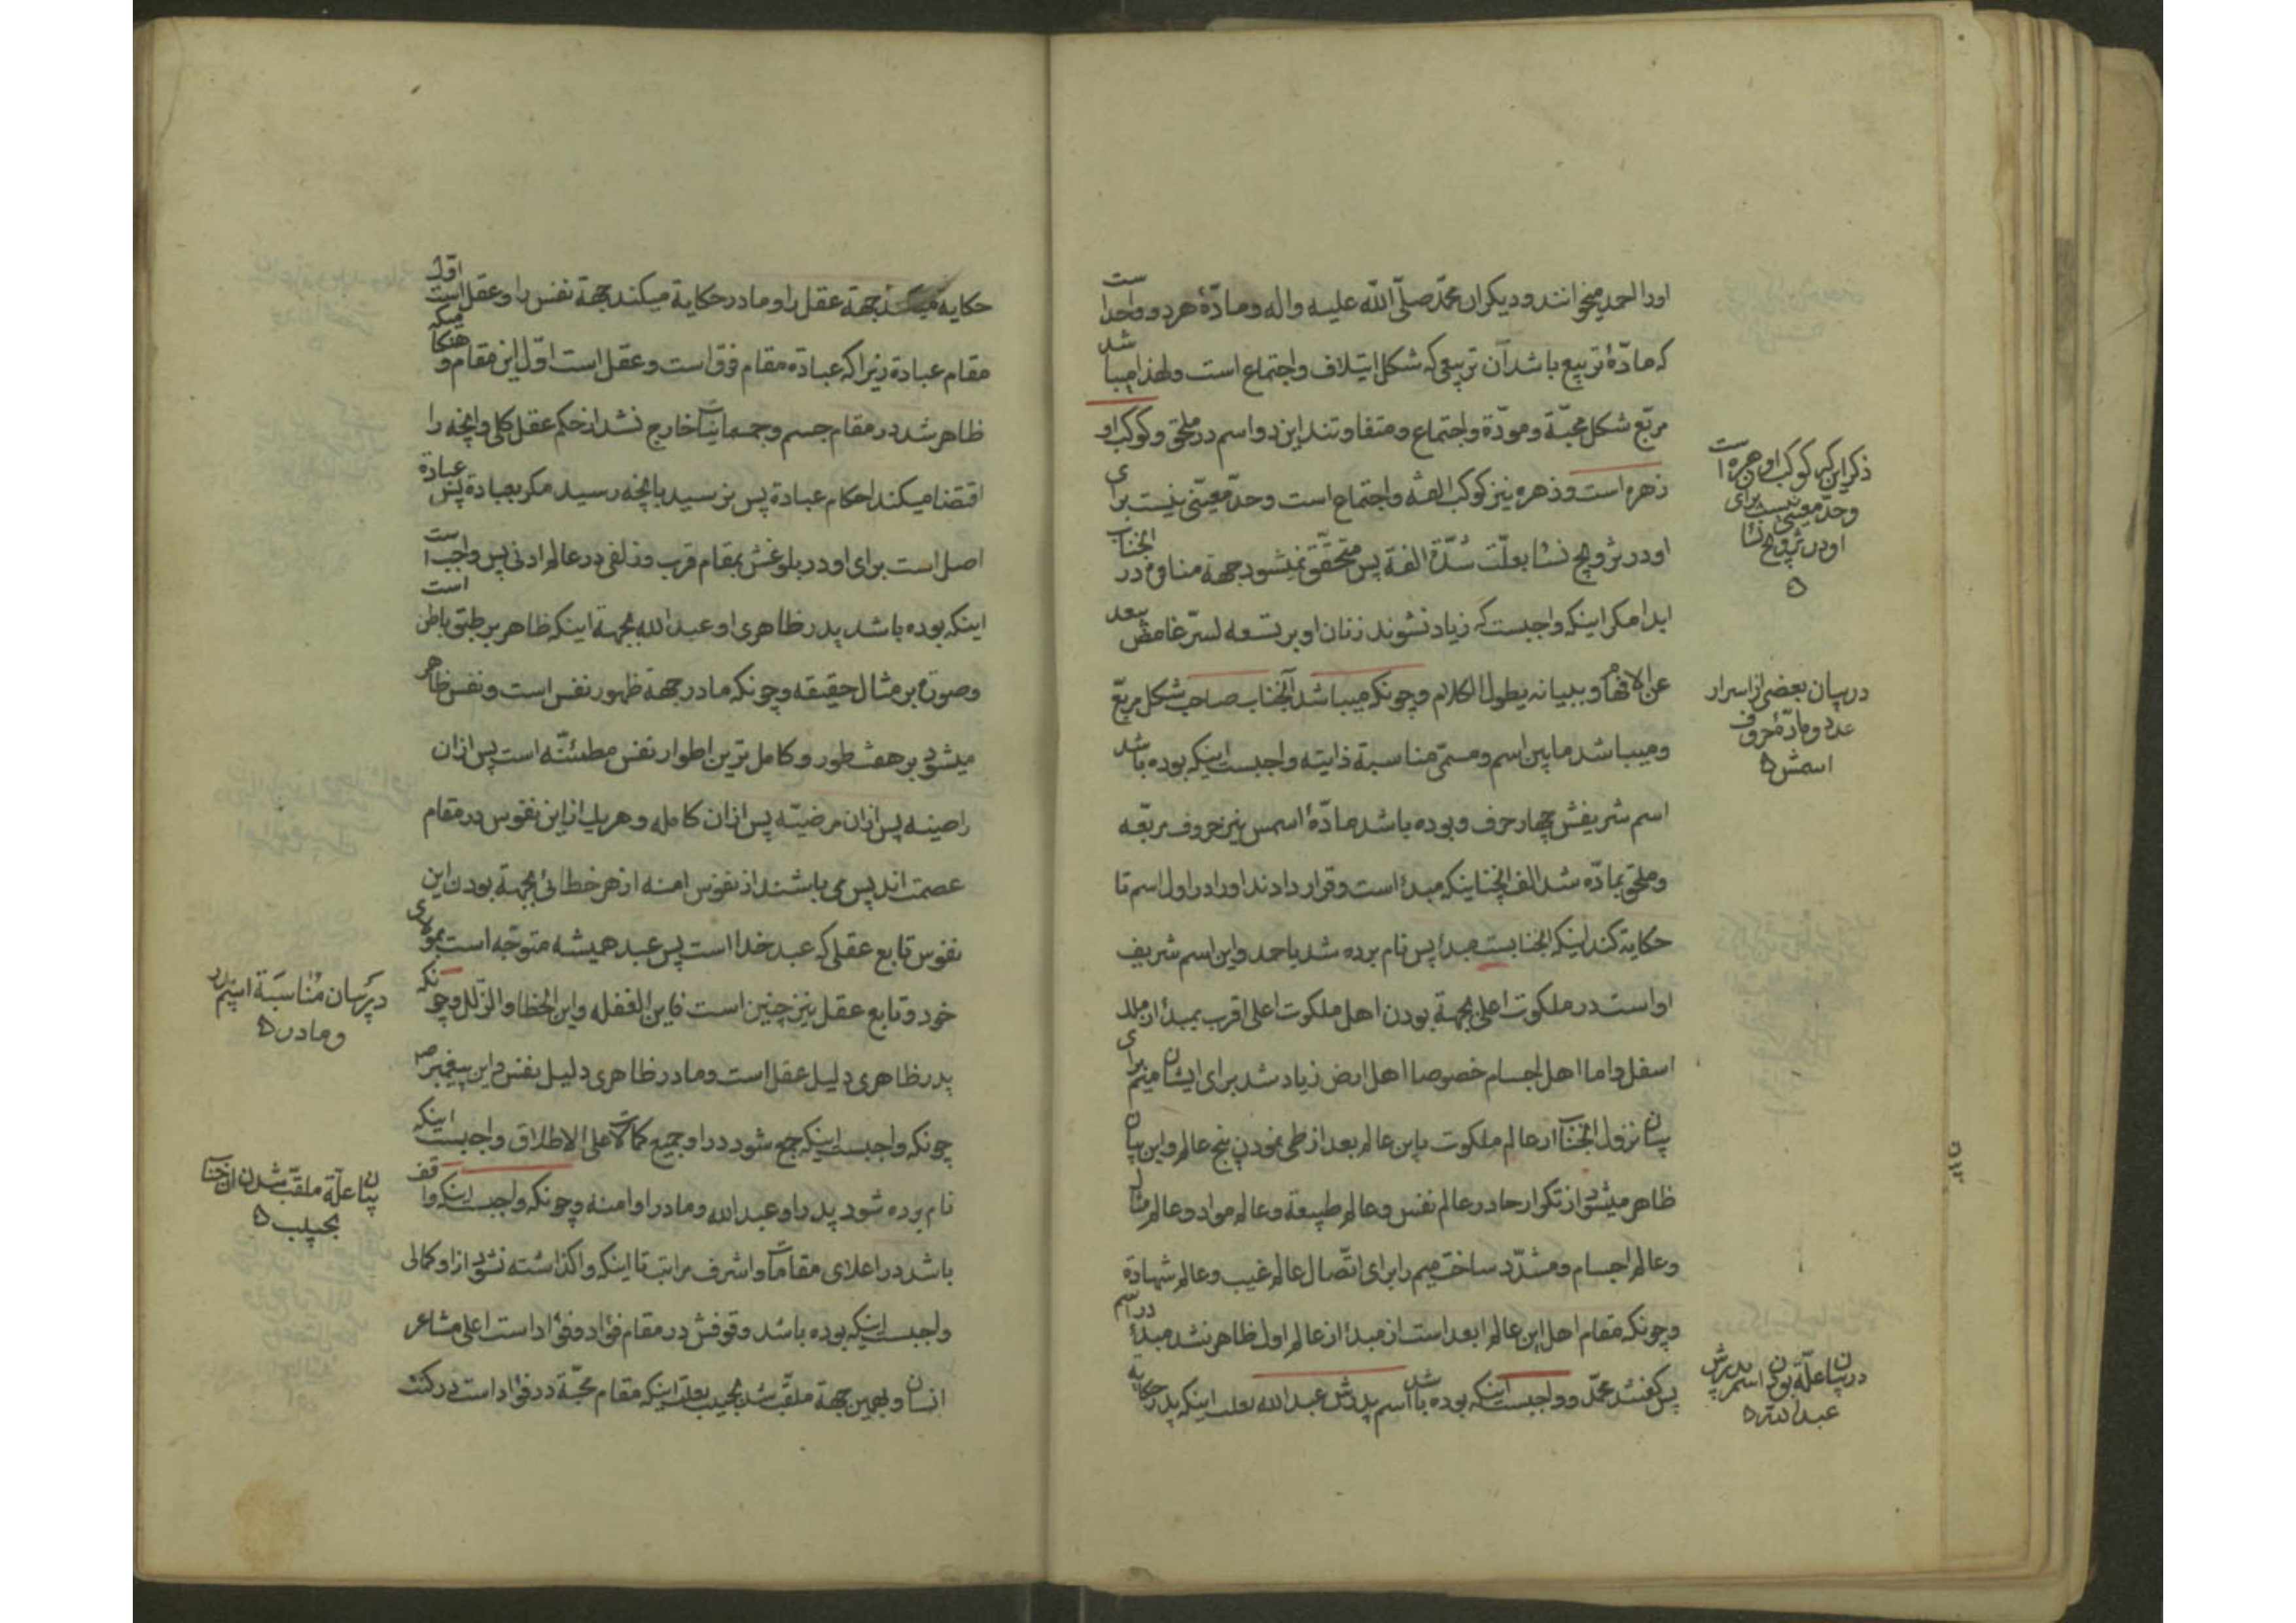 اورا احمد میخوانند و دیکران محمّد صلّی الله علیه واله و مادّهٔ هر دو واحد است
که مادّهٔ تربیع باشد آن تربیعی که شکل ایتلاف و اجتماع است ولهذا میباشد
مربّع شکل محبّة و مودّة و اجتماع و متفاوتند این دو اسم در ملحق و کوکب او
زهره است و زهره نیز کوکب الفة و اجتماع است و حدّ معیّنی نیست برای
او در تزویج نسا بعلّت شدّة الفة پس متحقّق نمیشود جهة منافی در انجناب
ابدا مکر اینکه واجبست که زیاد نشوند زنان او بر تسعه لسرّ غامض بعد
عن الافهام و ببیانه یطول الکلام و چونکه میباشد آنجناب صاحب شکل مربّع
و میباشد مابین اسم و مسمّی مناسبة ذاتیه واجبست اینکه بوده باشد
اسم شریفش چهار حرف و بوده باشد مادّهٔ اسمس نیز حروف مربّعه
و ملحق بمادّه شد الف انچنانیکه مبدأ است و قرار دادند او را در اول اسم تا
حکایة کند اینکه انجنابست مبدأ پس نام برده شد باحمد و این اسم شریف
او است در ملکوت اعلی بجهة بودن اهل ملکوت اعلی اقرب بمبدأ از ملک
اسفل و اما اهل اجسام خصوصا اهل ارض زیاد شد برای ایشان میم برای
بیان نزول انجناب از عالم ملکوت باین عالم بعد از طی نمودن پنج عالم و این بیان
ظاهر میشود از تکرار حا در عالم نفس و عالم طبیعة و عالم مواد و عالم مثال
و عالم اجسام و مشدّد ساخت میم را برای اتّصال عالم غیب و عالم شهادة
و چونکه مقام اهل این عالم ابعد است از مبدأ از عالم اول ظاهر نشد مبدأ در اسم
پس کفتند محمّد و واجبست اینکه بوده باشد اسم پدرش عبدالله بعلت اینکه پدر حکایة
ذکر این که کوکب او زهره است
و حدّ معینی نیست برای
او در تزویج نسا
در بیان بعضی از اسرار
عدد و مادّهٔ حروف
اسمش
در بیان علّة بودن اسم پدرش
عبدالله
حکایه میکند جهة عقل را و مادر حکایة میکند جهة نفس را و عقل است اول
مقام عبادة زیرا که عبادة مقام فرق است و عقل است اوّل این مقام و هنکامیکه
ظاهر شد در مقام جسم و جسمانیات خارج نشد از حکم عقل کلی و انچه را
اقتضا میکند احکام عبادة پس نرسید بانچه رسید مکر بعبادة پس عبادة
اصل است برای او در بلوغش بمقام قرب و زلفی در عالم ادنی پس واجب است
اینکه بوده باشد پدر ظاهری او عبدالله بجهة اینکه ظاهر بر طبق باطن است
و صورة بر مثال حقیقه و چونکه مادر جهة ظهور نفس است و نفس ظاهر
میشود بر هفت طور و کامل ترین اطوار نفس مطمئنّه است پس از ان
راضیه پس از ان مرضیّه پس از ان کامله و هر یک از این نفوس در مقام
عصمت اند پس می باشند از نفوس امنه از هر خطائی بجهة بودن این
نفوس تابع عقلی که عبد خدا است پس عبد همیشه متوجّه است بمولای
خود و تابع عقل نیز چنین است فاین الغفله و این الخطا و الزّلل و چونکه
پدر ظاهری دلیل عقل است و مادر ظاهری دلیل نفس و این پیغمبر ص
چونکه واجبست اینکه جمع شود در او جمیع کمالات علی الاطلاق واجبست اینکه
نام برده شود پدر او عبدالله و مادر او امنه و چونکه واجبست اینکه واقف
باشد در اعلای مقامات و اشرف مراتب تا اینکه واکذاشته نشود از او کمالی
واجبست اینکه بوده باشد وقوفش در مقام فؤاد و فؤاد است اعلی مشاعر
انسان و بهمین جهة ملقّب شد بحبیب بعلت اینکه مقام محبّة در فؤاد است
در بیان مناسبة اسم پدر
و مادر
بیان علّة ملقّب شدن انجناب
بحبیب